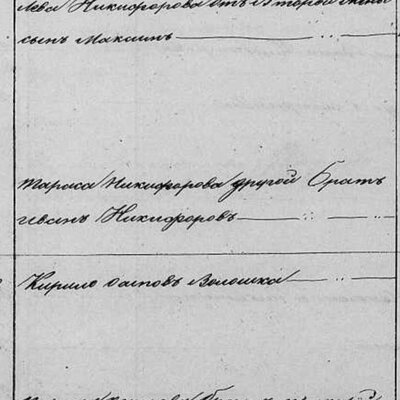 Лева Никифорова отъ второй жены
сынъ Максимъ
Тараса Никифорова другой братъ
Иванъ Никифоровъ
Кирило Осиповъ Волошка